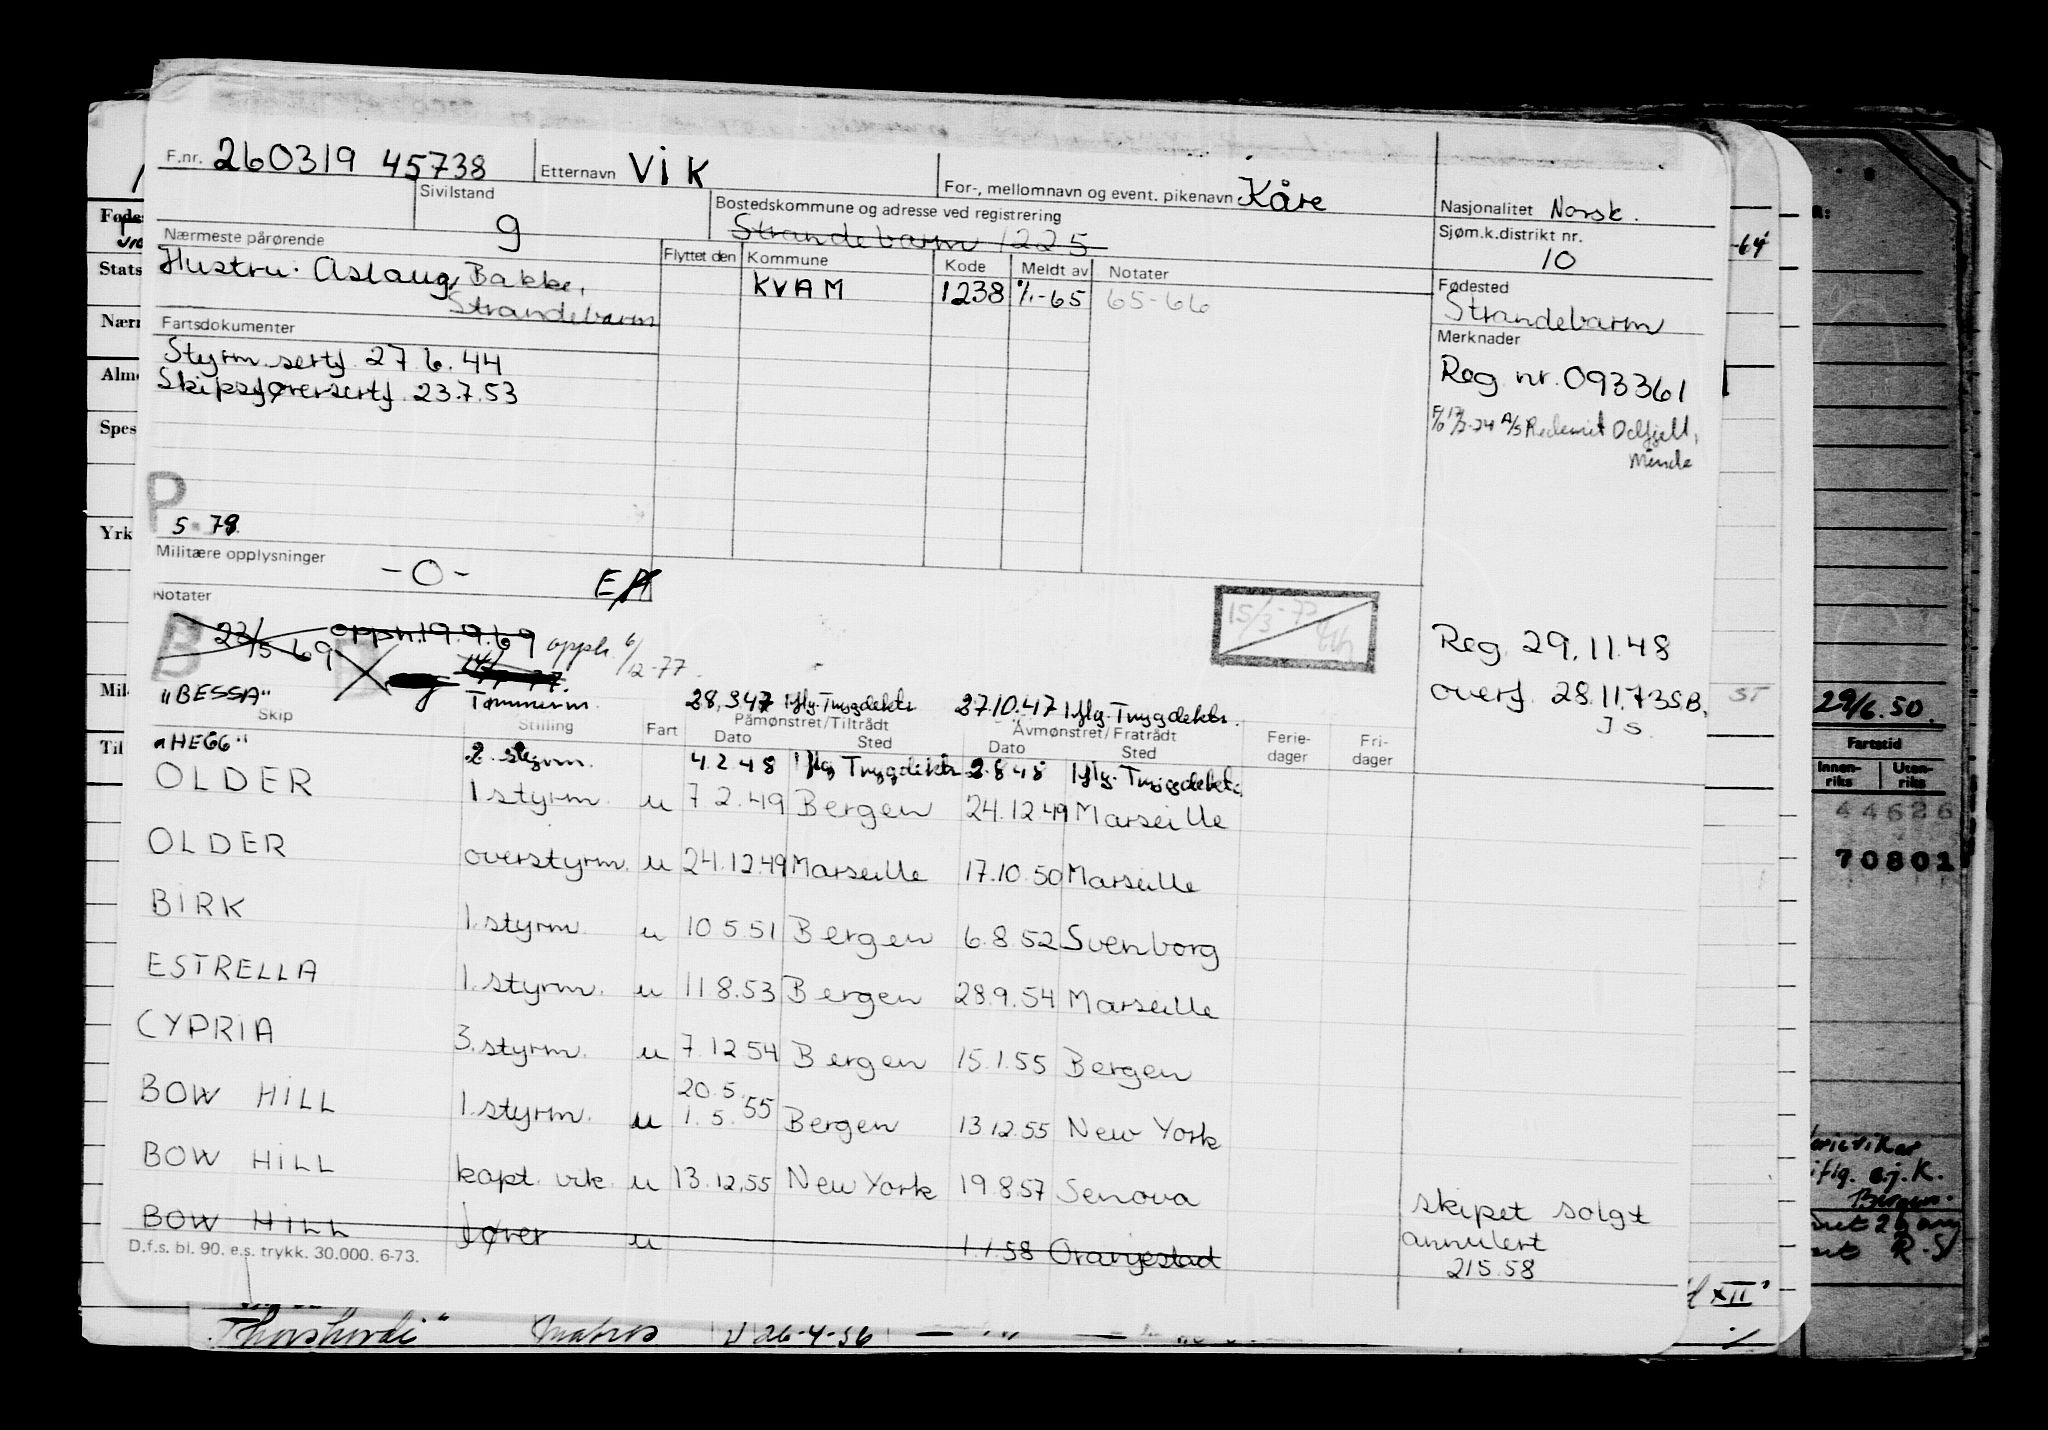 F.nr. 260319 45738 Etternavn Vik For-, mellomnavn og event. pikenavn Kåre
Nasjonalitet Norsk.
Sivilstand g
Bostedskommune og adresse ved registrering
Strandebarm 1225
Sjøm.k.distrikt nr. 10
Nærmeste pårørende
Hustru: Aslaug Bakke,
Strandebarm
Flyttet den Kommune Kode Meldt av Notater
KVAM 1238 1/1-65 65-66
Fødested
Strandebarm
Fartsdokumenter
Styrm. sertf. 27.6.44
Skipsførersertf. 23.7.53
Merknader
Reg nr. 093361
A/S Rederiet Odfjell,
Minde
P
5-78
Militære opplysninger
-0-
Notater
B 23/5 69 opph. 19.9.69 opph. 6/12-77
15/3-77
Reg. 29.11.48
overf. 28.11.73 S.B.
J S.
"BESSA" Tømmerm. 28.3.47 iflg. Trygdekts 27.10.47 iflg. Trygdekts.
Skip Stilling Fart Påmønstret/Tiltrådt Avmønstret/Fratrådt Ferie-dager Fri-dager
Dato Sted Dato Sted
"HEGG" 2. styrm. 4.2.48 iflg Trygdekts 2.8.48 iflg. Trygdekts.
OLDER 1 styrm. u 7 2.49 Bergen 24.12.49 Marseille
OLDER overstyrm. u 24.12.49 Marseille 17.10.50 Marseille
BIRK 1. styrm. u 10 5.51 Bergen 6.8.52 Svenborg
ESTRELLA 1. styrm. u 11 8.53 Bergen 28.9.54 Marseille
CYPRIA 3. styrm. u 7.12 54 Bergen 15.1.55 Bergen
BOW HILL 1. styrm. u 20.5. 1.5.55 Bergen 13 12.55 New York
BOW HILL kapt. vik. u 13.12.55 New York 19.8.57 Senova
skipet solgt
BOW HILL fører u 1.1.58 Oranjestad
annulert
21 5.58
D.f.s. bl. 90. e.s. trykk. 30.000. 6-73.
Stats
Spes
Yrk
Mil
Til
-64
ST
29/6.50.
Fartstid
Innen-riks Uten-riks
44626
70801
Bergen.
R.S
XII"
"Thorshovdi" Matros U 26-4-56